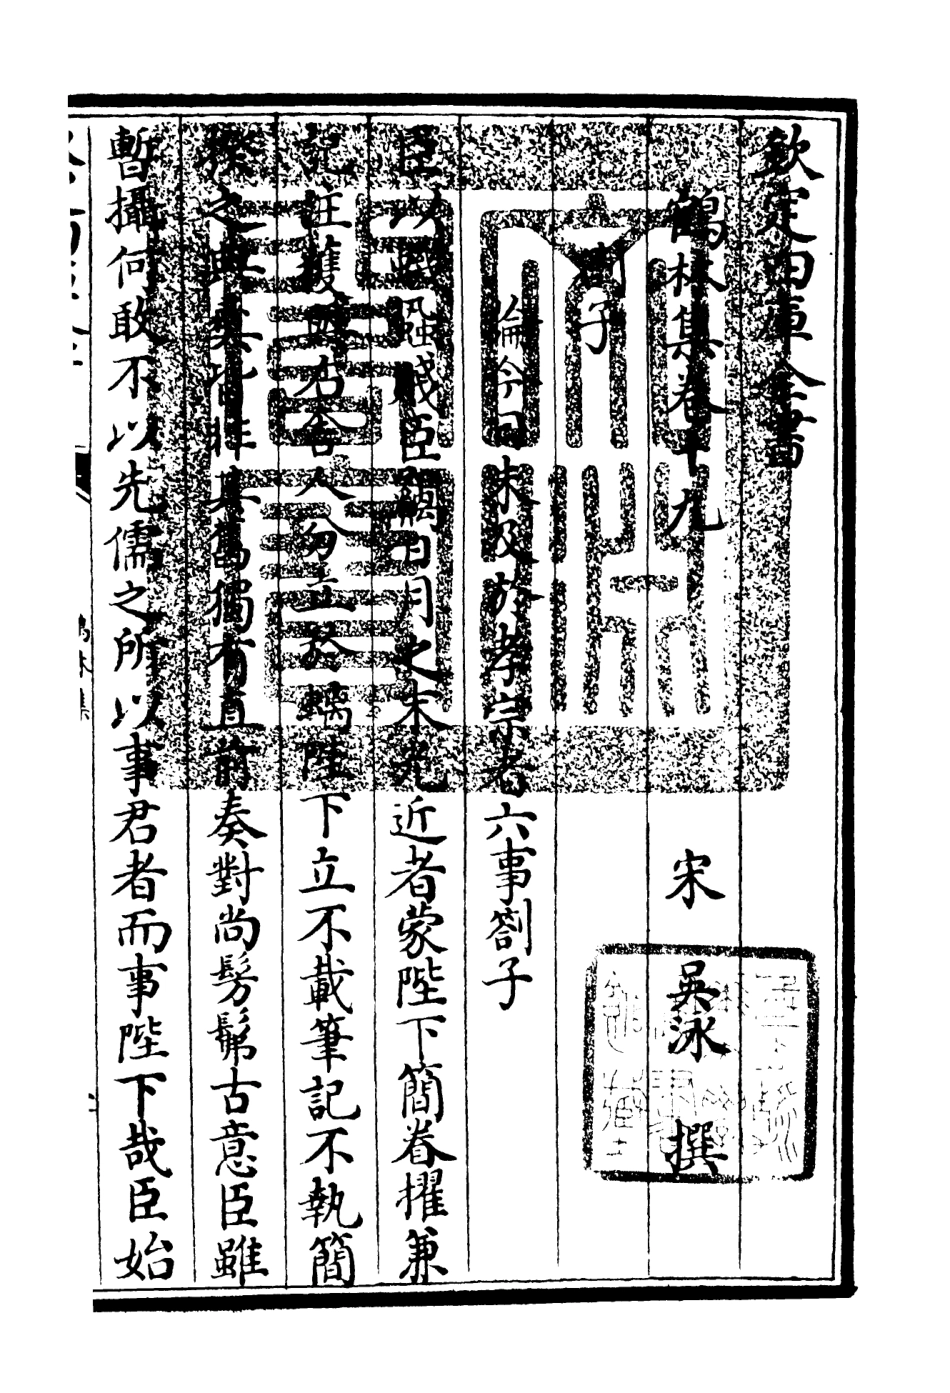 欽定四庫全書
鶴林集卷十九
宋 吳泳 撰
劄子
論今日未及於孝宗者六事劄子
臣以賤臣 日月之末光近者蒙陛下簡眷擢兼
右舍人分立於螭陛下立不載筆記不執簡
之典 皆非其舊獨有直前奏對尚髣髴古意臣雖
暫攝何敢不以先儒之所以事君者而事陛下哉臣始
鶴林集